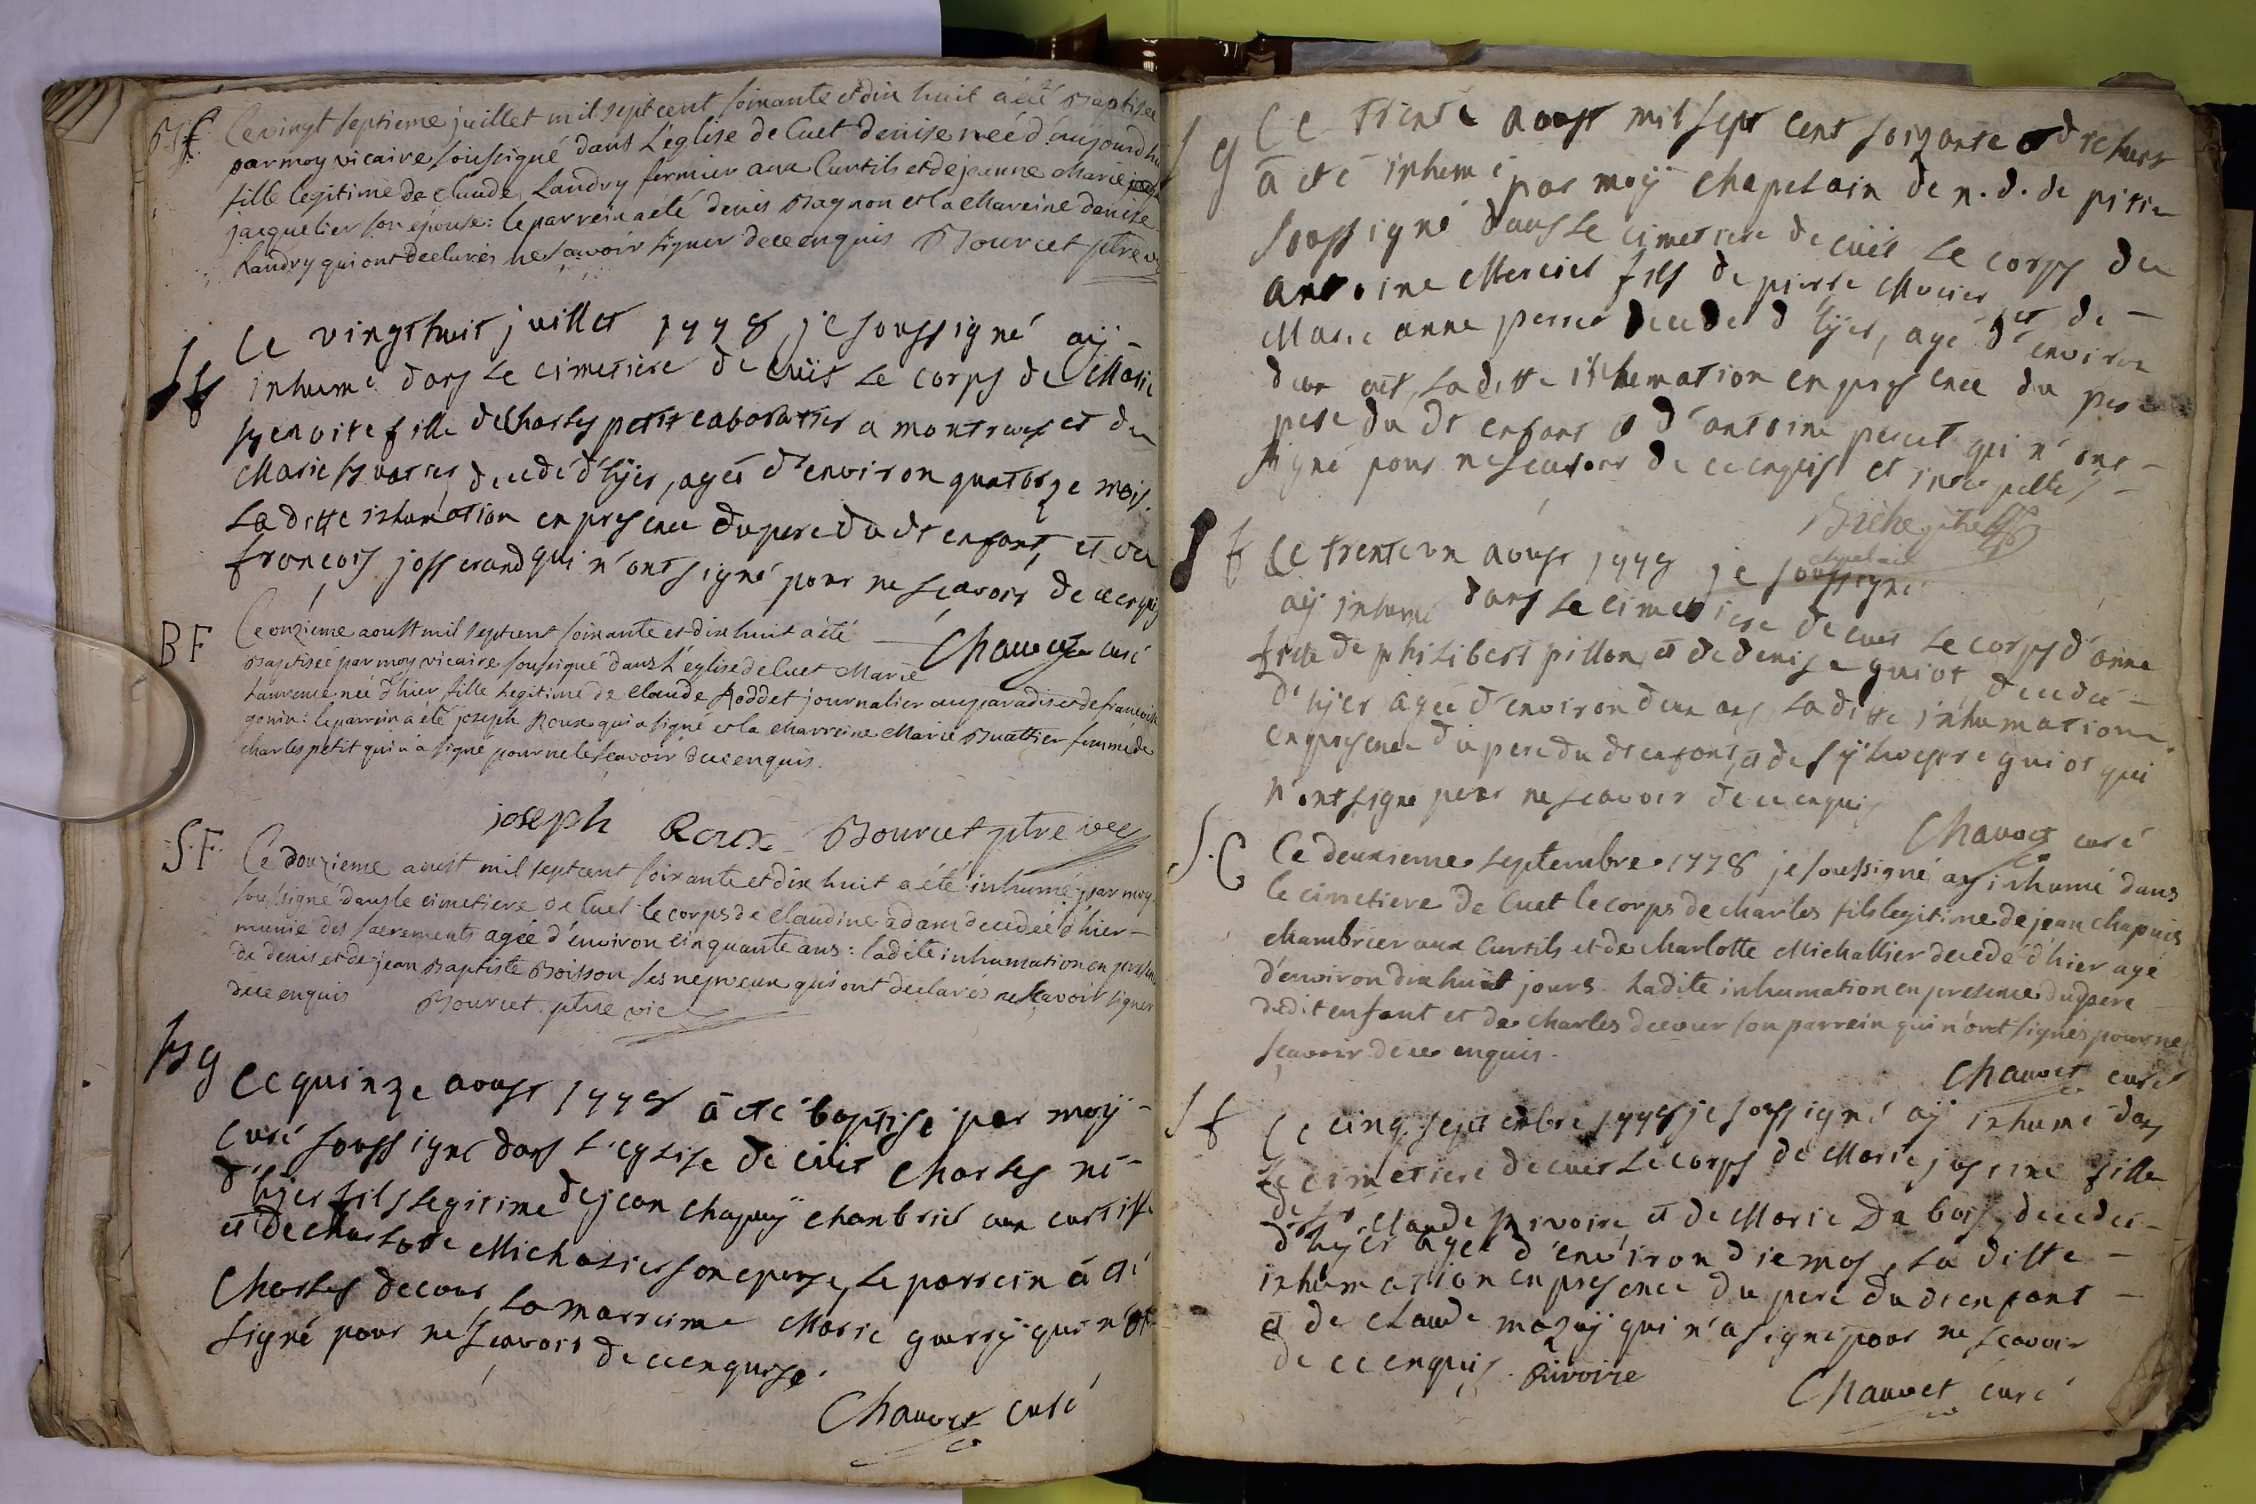 B f
Ce vingt septieme juillet mil sept cent soixante et dix huit a été Baptisée
par moy vicaire soussigné dans L'église de Cuet denise née d'aujourd'hui
fille legitime de claude Landry fermier aux Curtils et de jeanne Marie
jacquelier son épouse: le parrein a été denis Bagnon et la Mareine denise
Landry qui ont declarés ne scavoir signer de ce enquis Bourcet ptre v
S f
Ce vingt huit juillet 1778 je soussigné aÿ
inhumé dans le cimetiere de cuët le corps de Marie
benoite fille de Charles petit laboratier a montreux et de
Marie buattier decedé d'hÿer, agés d'environ quatorze mois.
La ditte inhumation en presence du pere du dt enfant, et de
francois josserand qui n'ont signé pour ne scavoir de ce enquis
Chauvet curé
B F
Ce onzieme aoust mil sept cent soixante et dix huit a été
Baptisée par moy vicaire soussigné dans L'église de Cuet Marie
Laurence née d'hier fille Legitime de Claude Roddet journalier au paradis et de francoise
gonin: le parrein a été joseph Roux qui a signé et la Marreine Marie Buattier femme de
charles petit qui n'a signé pour ne le scavoir de ce enquis.
joseph Roux Bourcet ptre vic
S. F.
Ce douzieme aoust mil sept cent soixante et dix huit a été inhumé par moy
soussigné dans le cimetiere de Cuet le corps de claudine adam decedée d'hier
munie des sacrements agée d'environ cinquante ans: ladite inhumation en presence
de denis et de jean Baptiste Boisson ses neveux qui ont declarés ne scavoir signer
de ce enquis Bourcet ptre vic
B g
Ce quinze aoust 1778 a eté baptisé par moÿ
curé soussigné dans l'eglise de cuet Charles né
d'hÿer fils legitime de jean chapuÿ chambrier aux curtils
et de charlotte Michalier son epouse, le parrein a eté
Charles decour, la marreine Marie guerrÿ qui n'ont
signé pour ne scavoir de ce enquise.
Chauvet curé
S g
Ce trente aoust mil sept cent soixante et dix huit
a eté inhumé par moÿ chapelain de n. d. de pitié
soussigné dans le cimetiere de cuët le corps de
antoine Mercier fils de pierre Mercier et de
Marie anne perret decedé d'hÿer, agé d'environ
deux ans, la ditte inhumation en presence du
pere du dt enfant et d'antoine perret qui n'ont
signé pour ne scavoir de ce enquis et interpellés
ptre
chapelain
S f
Ce trente un aoust 1778 je soussigné
aÿ inhumé dans le cimetiere de cuet le corps d'anne
fille de philibert pillon et de denise guiot, decedée
d'hÿer agée d'environ deux ans, la ditte inhumation
en presence du pere du dt enfant, et de sÿlvestre guiot qui
n'ont signé pour ne scavoir de ce enquis
Chauvet curé
S. G
Ce deuxieme septembre 1778 je soussigné ay inhumé dans
le cimetiere de Cuet le corps de charles fils legitime de jean chapuis
chambrier aux Curtils et de Charlotte Michallier decedé d'hier agé
d'environ dix huit jours. Ladite inhumation en presence du pere
dudit enfant et de charles decour son parrein qui n'ont signés pour ne
scavoir de ce enquis.
Chauvet curé
S f
Ce cinq septembre 1778 je soussigné aÿ inhumé dans
le cimetiere de cuet le corps de Marie josine fille
de Claude Rivoire et de Marie Du bois, decedée
d'hÿer agée d'environ die mos, la ditte
inhumation en presence du pere du dt enfant
et de claude mazuÿ qui n'a signé pour ne scavoir
de ce enquis. Rivoire
Chauvet curé